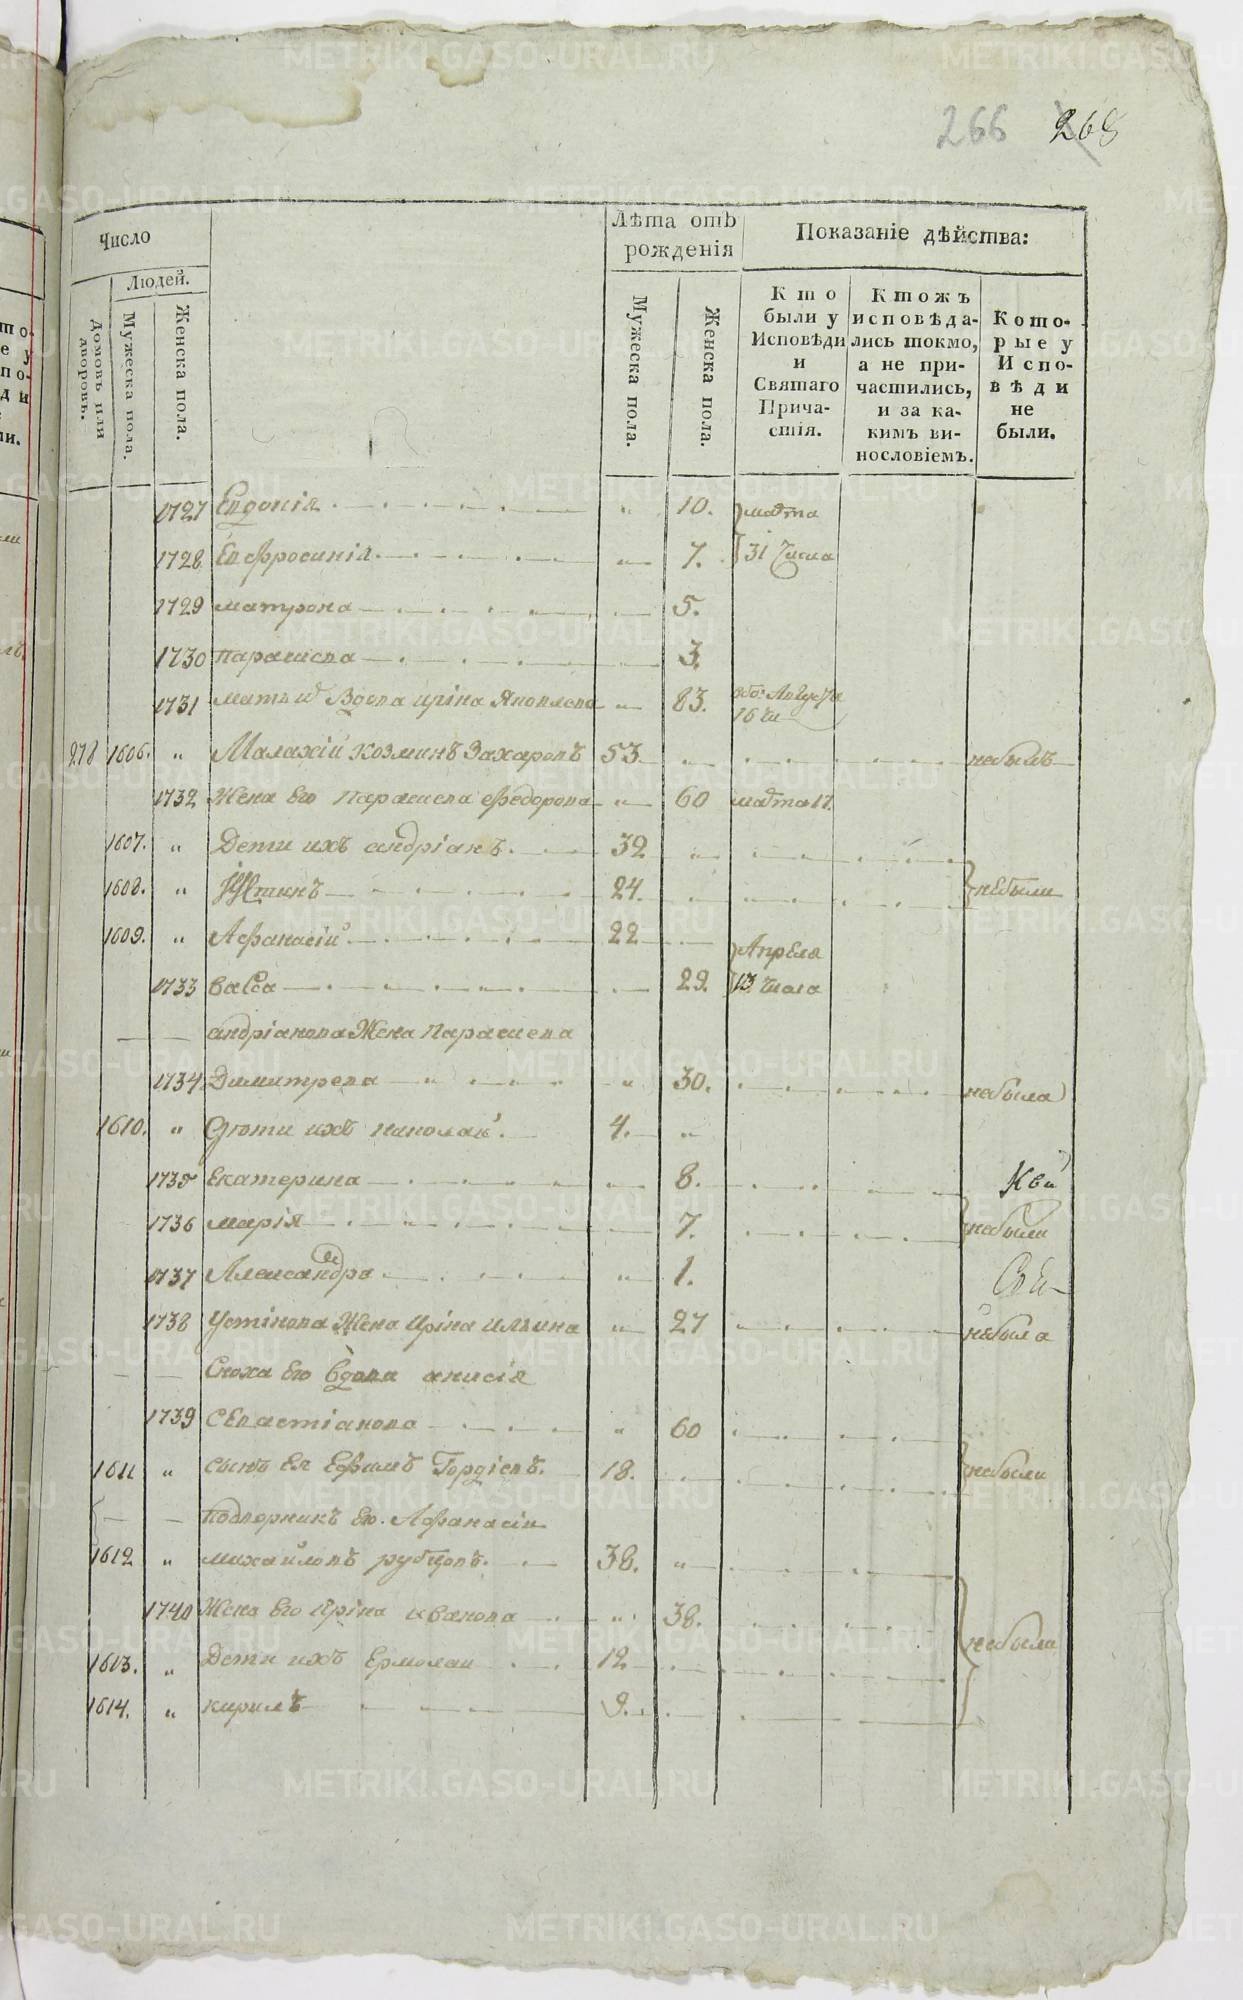 266 268
Число
Людей.
Домовъ или дворовъ.
Мужеска пола.
Женска пола.
Лѣта отъ рожденія
Мужеска пола.
Женска пола.
Показаніе дѣйства:
Кто были у Исповѣди и Святаго Прича-стія.
Ктожъ исповѣда-лись токмо, а не при-частились, и за ка-кимъ ви-нословіемъ.
Кото-рые у Испо-вѣди не были.
1727 Евдокія " 10. марта
1728 Евфросинія " 7. 31 числа
1729 матрона 5.
1730 параскева 3.
1731 мать Вдова иріна Яковлева " 83. Августа 16
278 1606. " Малахій козминъ Захаровъ 53 небылъ
1732 Жена его параскева Федорова " 60 марта 17.
1607. " Дети ихъ андріанъ. 32
1608. " Устинъ 24. небыли
1609. " Афанасій 22 Апреля
1733 васса 29. 13 числа
андріанова Жена параскева
1734 Димитрева " 30. небыла
1610. " Дѣти ихъ николай. 4. "
1735 Екатерина 8.
1736 марія 7. небыли
1737 Александра " 1.
1738 Устінова Жена иріна ильина " 27 небыла
Сноха его Вдова анисія
1739 Севастіанова " 60
1611 " сынъ ея Ефимъ Гордіевъ. 18. небыли
Подворникъ его Афанасій
1612 " михайловъ рубцовъ. 38. "
1740 Жена его иріна иванова " 38. небыли
1613. " Дети ихъ Ермолаи 12
1614. " кирилъ 9.
METRIKI.GASO-URAL.RU